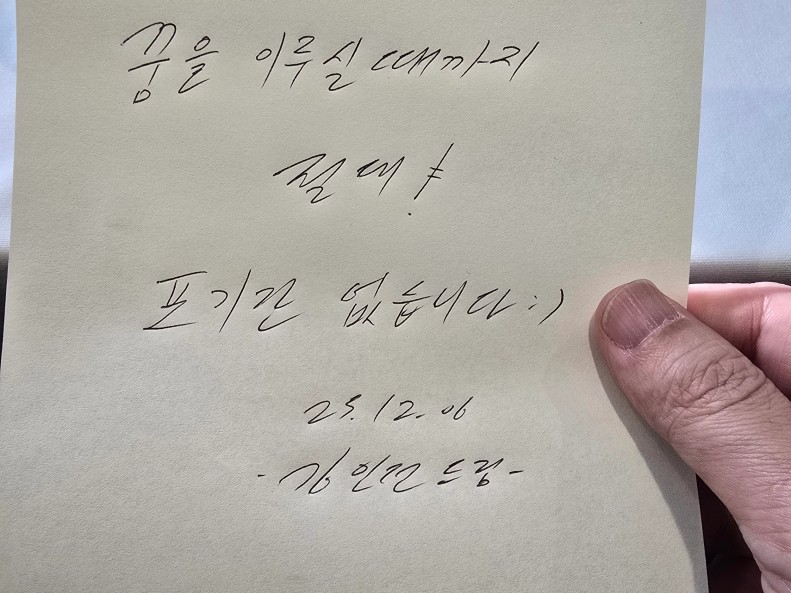 꿈을 이루실 때까지
절대!
포기란 없습니다:)
25.12.06
- 드림-